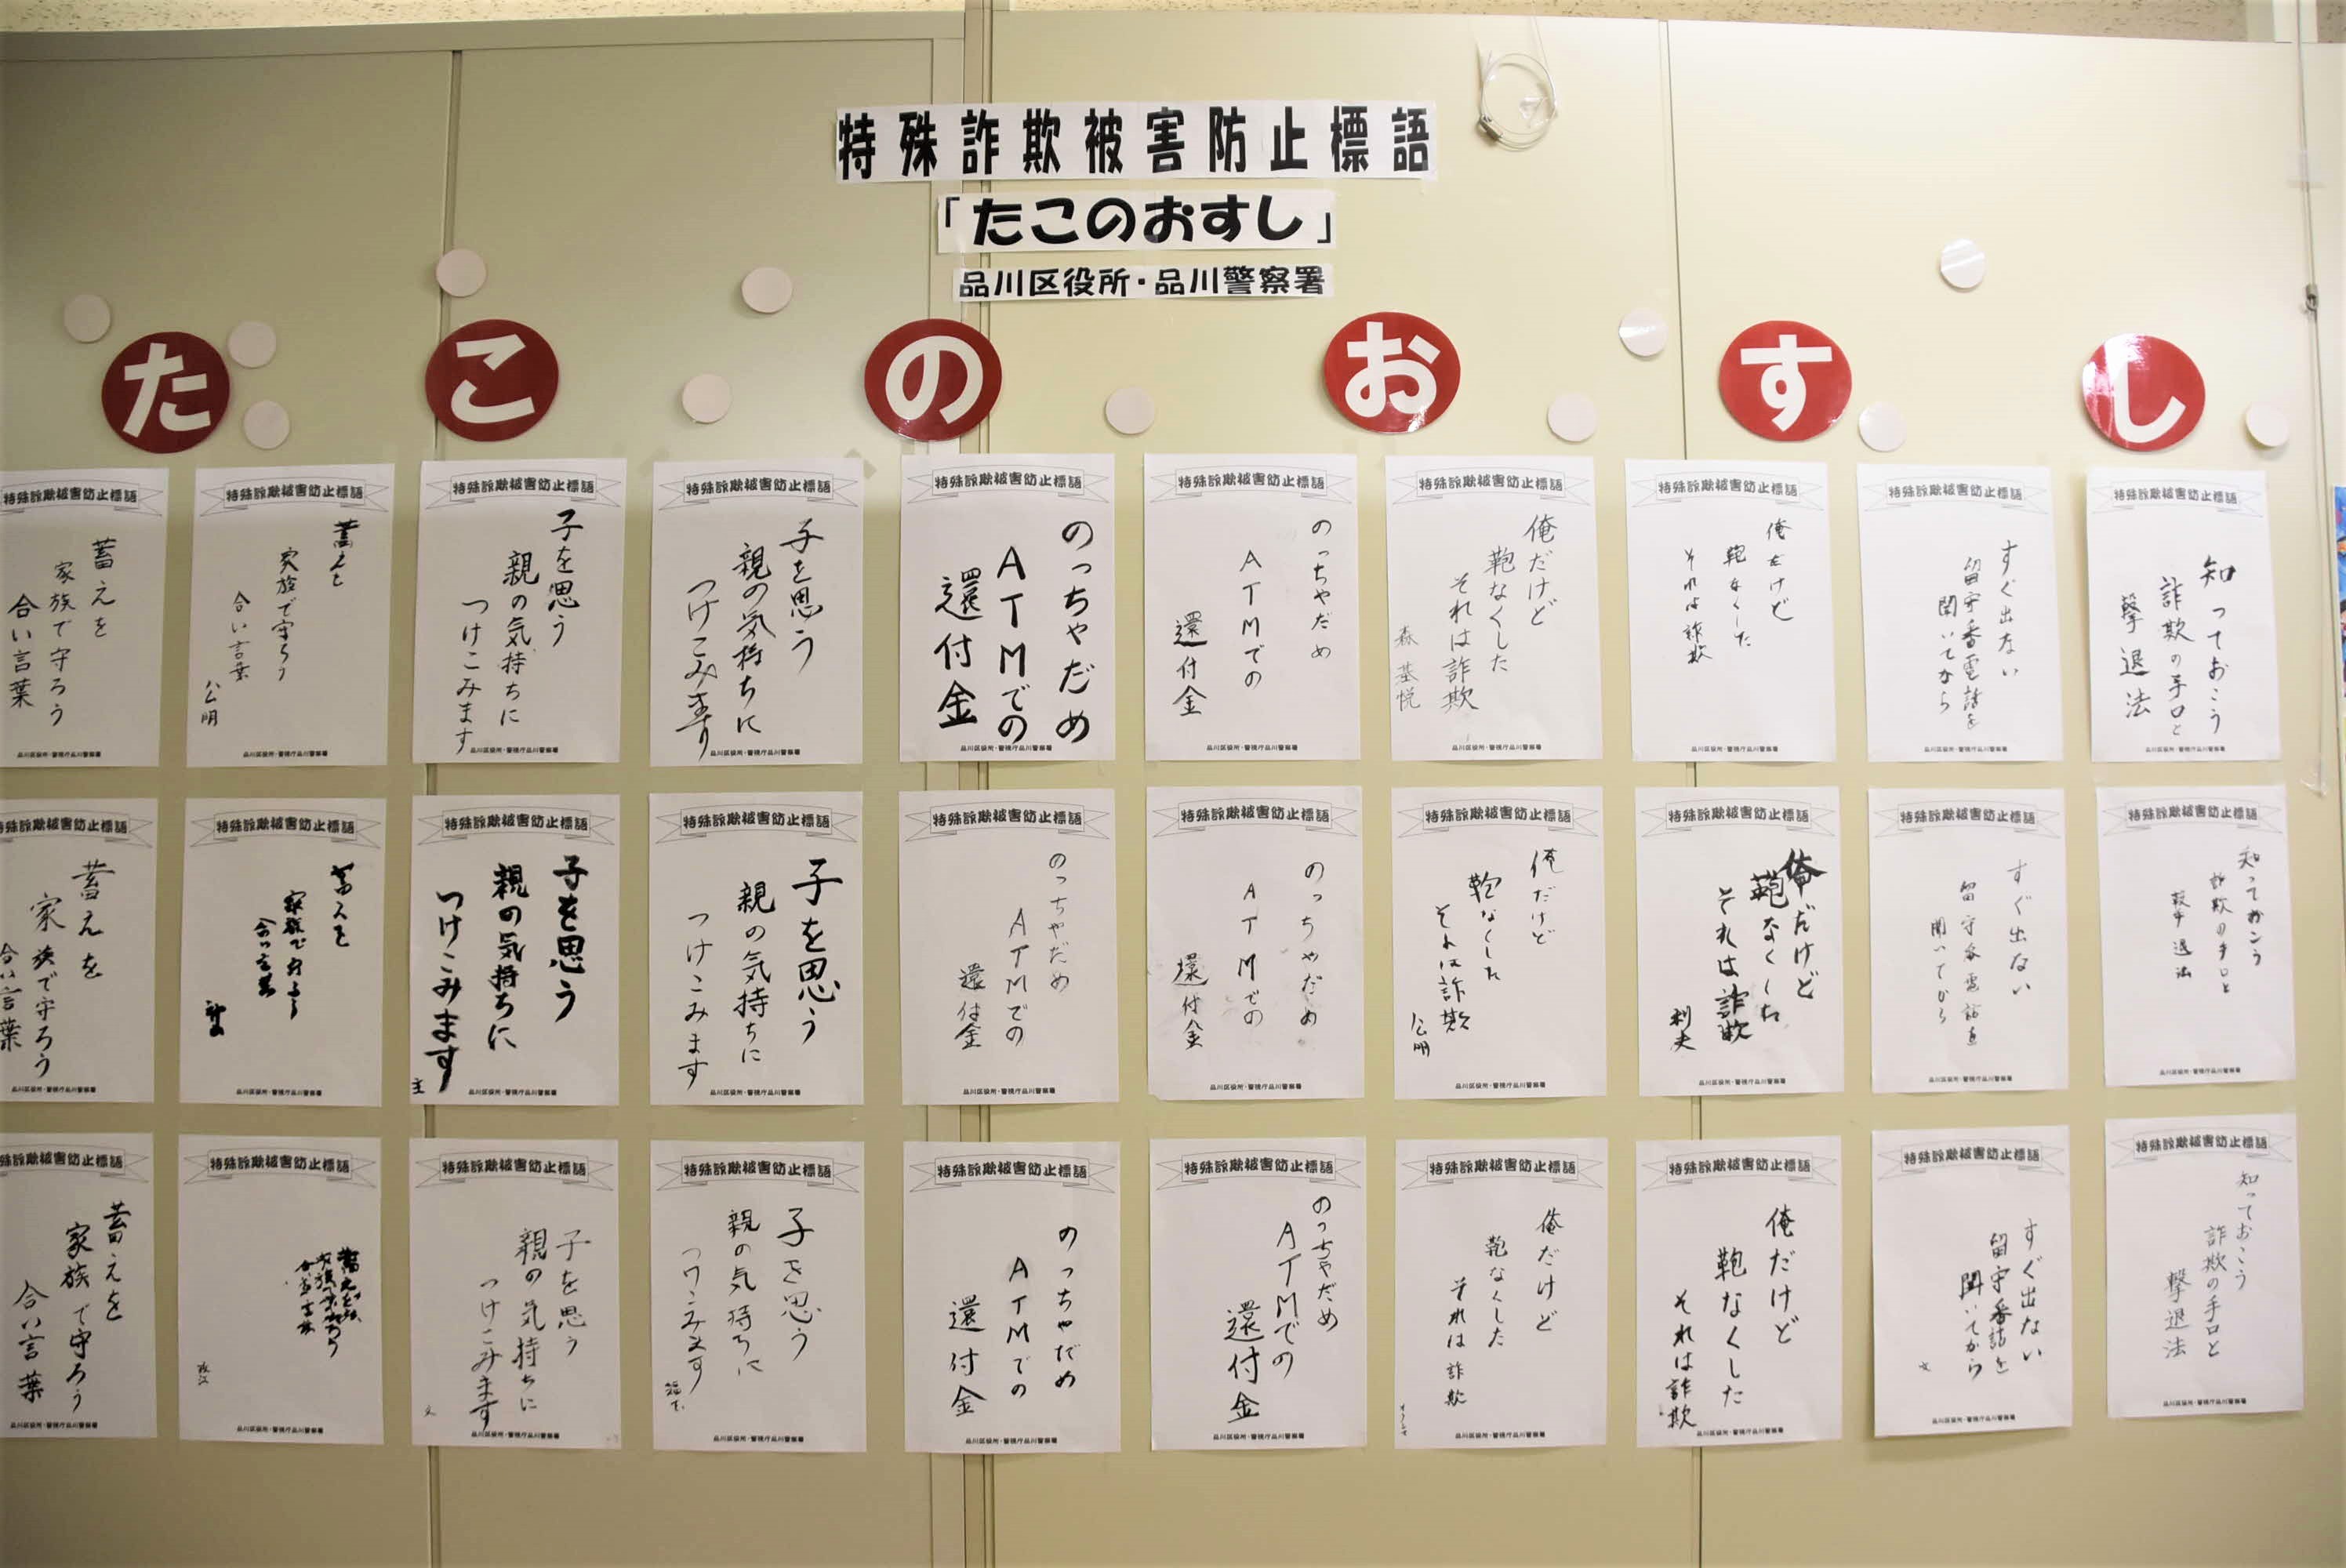 特殊詐欺被害防止標語
「たこのおすし」
品川区役所・品川警察署
た
こ
の
お
す
し
特殊詐欺被害防止標語
蓄えを
家族で守ろう
合い言葉
品川区役所・警視庁品川警察署
特殊詐欺被害防止標語
蓄えを
家族で守ろう
合い言葉
公明
品川区役所・警視庁品川警察署
特殊詐欺被害防止標語
子を思う
親の気持ちに
つけこみます
品川区役所・警視庁品川警察署
特殊詐欺被害防止標語
子を思う
親の気持ちに
つけこみます
品川区役所・警視庁品川警察署
特殊詐欺被害防止標語
のっちゃだめ
ATMでの
還付金
品川区役所・警視庁品川警察署
特殊詐欺被害防止標語
のっちゃだめ
ATMでの
還付金
品川区役所・警視庁品川警察署
特殊詐欺被害防止標語
俺だけど
鞄なくした
それは詐欺
森基悦
品川区役所・警視庁品川警察署
特殊詐欺被害防止標語
俺だけど
鞄なくした
それは詐欺
品川区役所・警視庁品川警察署
特殊詐欺被害防止標語
すぐ出ない
留守番電話を
聞いてから
品川区役所・警視庁品川警察署
特殊詐欺被害防止標語
知っておこう
詐欺の手口と
撃退法
品川区役所・警視庁品川警察署
特殊詐欺被害防止標語
蓄えを
家族で守ろう
合い言葉
品川区役所・警視庁品川警察署
特殊詐欺被害防止標語
蓄えを
家族で守ろう
合い言葉
品川区役所・警視庁品川警察署
特殊詐欺被害防止標語
子を思う
親の気持ちに
つけこみます
圭
品川区役所・警視庁品川警察署
特殊詐欺被害防止標語
子を思う
親の気持ちに
つけこみます
品川区役所・警視庁品川警察署
特殊詐欺被害防止標語
のっちゃだめ
ATMでの
還付金
品川区役所・警視庁品川警察署
特殊詐欺被害防止標語
のっちゃだめ
ATMでの
還付金
品川区役所・警視庁品川警察署
特殊詐欺被害防止標語
俺だけど
鞄なくした
それは詐欺
公明
品川区役所・警視庁品川警察署
特殊詐欺被害防止標語
俺だけど
鞄なくした
それは詐欺
利夫
品川区役所・警視庁品川警察署
特殊詐欺被害防止標語
すぐ出ない
留守番電話を
聞いてから
品川区役所・警視庁品川警察署
特殊詐欺被害防止標語
知っておこう
詐欺の手口と
撃退法
品川区役所・警視庁品川警察署
特殊詐欺被害防止標語
蓄えを
家族で守ろう
合い言葉
品川区役所・警視庁品川警察署
特殊詐欺被害防止標語
蓄えを
家族で守ろう
合い言葉
品川区役所・警視庁品川警察署
特殊詐欺被害防止標語
子を思う
親の気持ちに
つけこみます
品川区役所・警視庁品川警察署
特殊詐欺被害防止標語
子を思う
親の気持ちに
つけこみます
品川区役所・警視庁品川警察署
特殊詐欺被害防止標語
のっちゃだめ
ATMでの
還付金
品川区役所・警視庁品川警察署
特殊詐欺被害防止標語
のっちゃだめ
ATMでの
還付金
品川区役所・警視庁品川警察署
特殊詐欺被害防止標語
俺だけど
鞄なくした
それは詐欺
品川区役所・警視庁品川警察署
特殊詐欺被害防止標語
俺だけど
鞄なくした
それは詐欺
品川区役所・警視庁品川警察署
特殊詐欺被害防止標語
すぐ出ない
留守番話を
聞いてから
品川区役所・警視庁品川警察署
特殊詐欺被害防止標語
知っておこう
詐欺の手口と
撃退法
品川区役所・警視庁品川警察署